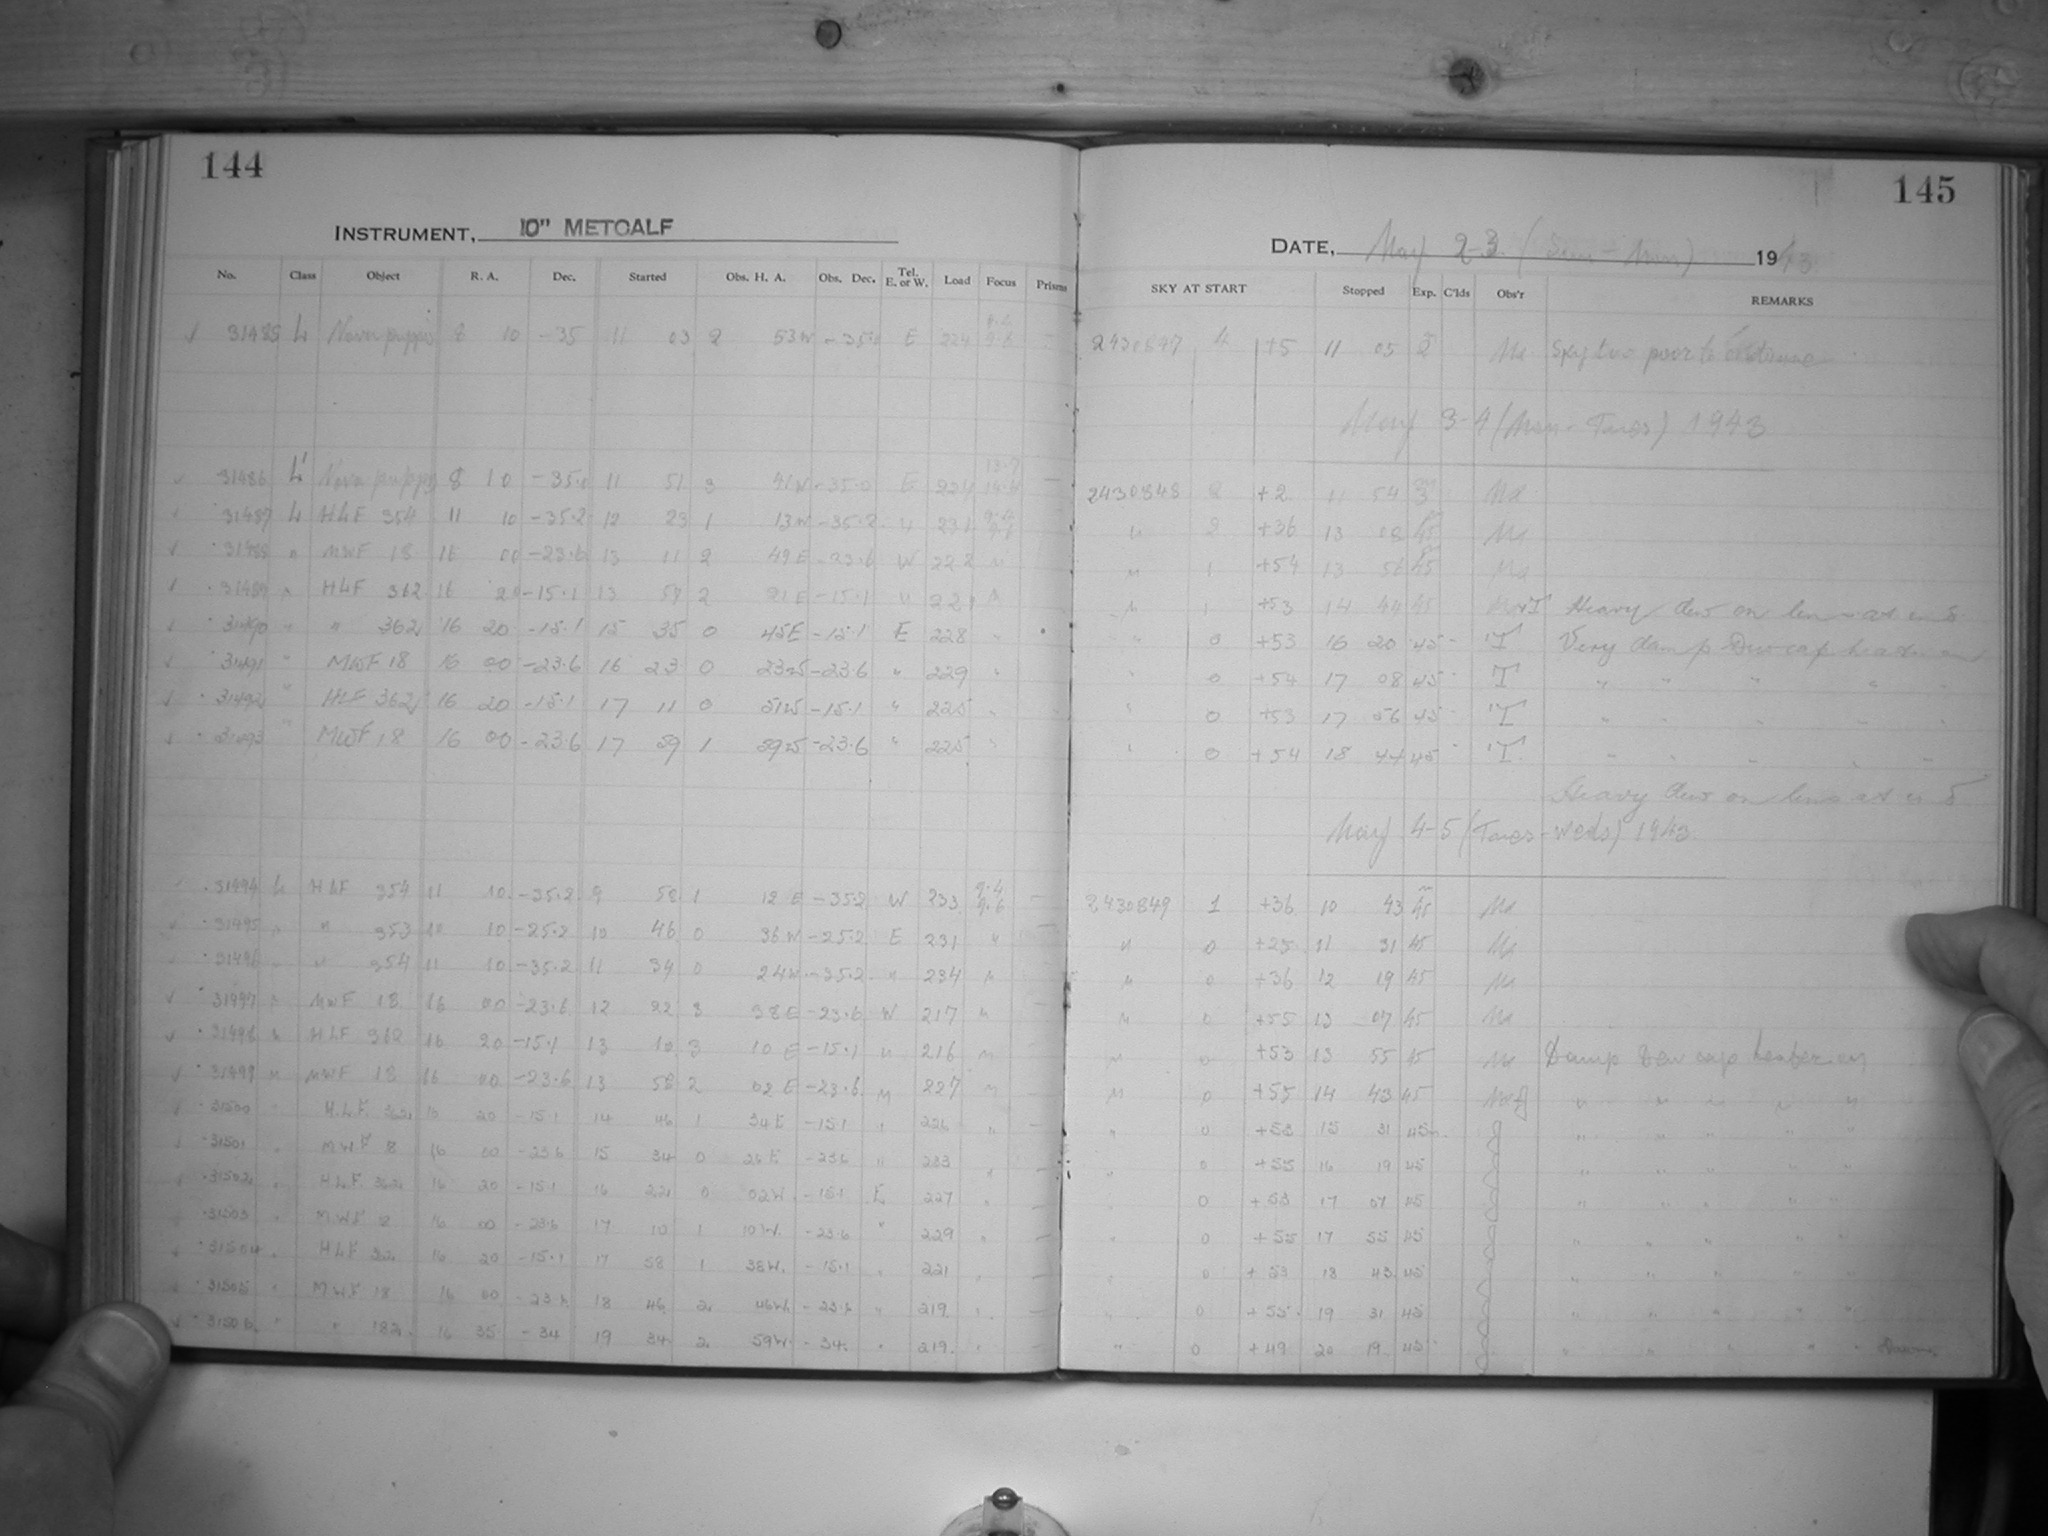 144
INSTRUMENT, 10" METCALF
No. Class Object R. A. Dec. Started Obs. H. A. Obs. Dec. Tel. E. or W. Load Focus Prisms
31485 L Nova puppis 8 10 -35 11 03 2 53W -35 E 224
31486 L Nova puppis 8 10 -35 11 51 3 41W -35 E
31487 L HLF 354 11 10 -35.2 12 23 1 13W -35.2 " 231 9.4 9.6
31488 " MWF 18 16 00 -23.6 13 11 2 49E -23.6 W 228 "
31489 " HLF 362 16 20 -15.1 13 59 2 21E -15.1 " 221 "
31490 " " 362 16 20 -15.1 15 35 0 45E -15.1 E 228 "
31491 " MWF 18 16 00 -23.6 16 23 0 23W -23.6 " 229 "
31492 " HLF 362 16 20 -15.1 17 11 0 51W -15.1 " 225 "
31493 " MWF 18 16 00 -23.6 17 59 1 59W -23.6 " 225 "
31494 L HLF 354 11 10 -35.2 9 58 1 12 E -35.2 W 233 9.4 9.6 -
31495 " " 353 10 10 -25.2 10 46 0 36W -25.2 E 231 " -
31496 " " 354 11 10 -35.2 11 34 0 24W -35.2 " 234 "
31497 " MWF 18 16 00 -23.6 12 22 3 38E -23.6 W 217 " -
31498 " HLF 362 16 20 -15.1 13 10 3 10 E -15.1 " 216 " -
31499 " MWF 18 16 00 -23.6 13 58 2 02 E -23.6 " 227 " -
31500 " H.L.F. 362 16 20 -15.1 14 46 1 34E -15.1 " 226 " -
31501 " MWF 18 16 00 -23.6 15 34 0 26E -23.6 " 233 " -
31502 " H.L.F. 362 16 20 -15.1 16 22 0 02W. -15.1 E 227 " -
31503 " M.W.F. 18 16 00 -23.6 17 10 1 10W. -23.6 " 229 " -
31504 " HLF 362 16 20 -15.1 17 58 1 38W. -15.1 " 221 " -
31505 " M.W.F. 18 16 00 -23.6 18 46 2 46W. -23.6 " 219 " -
31506 " " 182 16 35 -34 19 34 2 59W. -34. " 219. " -
145
DATE, May 2-3 (Sun-Mon) 1943
SKY AT START Stopped Exp. C'lds Obs'r REMARKS
4 +5 11 05 2 Ma Sky too poor to continue
May 3-4 (Mon-Tues) 1943
2430848 2 +2 11 54 3 Ma
" 2 +36 13 08 45 Ma
" 1 +54 13 56 45 Ma
" 1 +53 14 44 45 Heavy dew on lens at end
" 0 +53 16 20 45 T Very damp Dewcap heater on
" 0 +54 17 08 45 T " " " " "
" 0 +53 17 56 45 T " " " " "
" 0 +54 18 44 45 T " " " " "
Heavy dew on lens at end
May 4-5 (Tues-Weds) 1943
2430849 1 +36 10 43 45 Ma
" 0 +25 11 31 45 Ma
" 0 +36 12 19 45 Ma
" 0 +55 13 07 45 Ma
" 0 +53 13 55 45 Ma Damp Dew cap heater on
" 0 +55 14 43 45 " " " " "
" 0 +53 15 31 45 " " " " "
" 0 +55 16 19 45 " " " " "
" 0 +53 17 07 45 " " " " "
" 0 +55 17 55 45 " " " " "
" 0 +53 18 43 45 " " " " "
" 0 +55 19 31 45 " " " " "
" 0 +49 20 19 45 " " " " " Dawn.